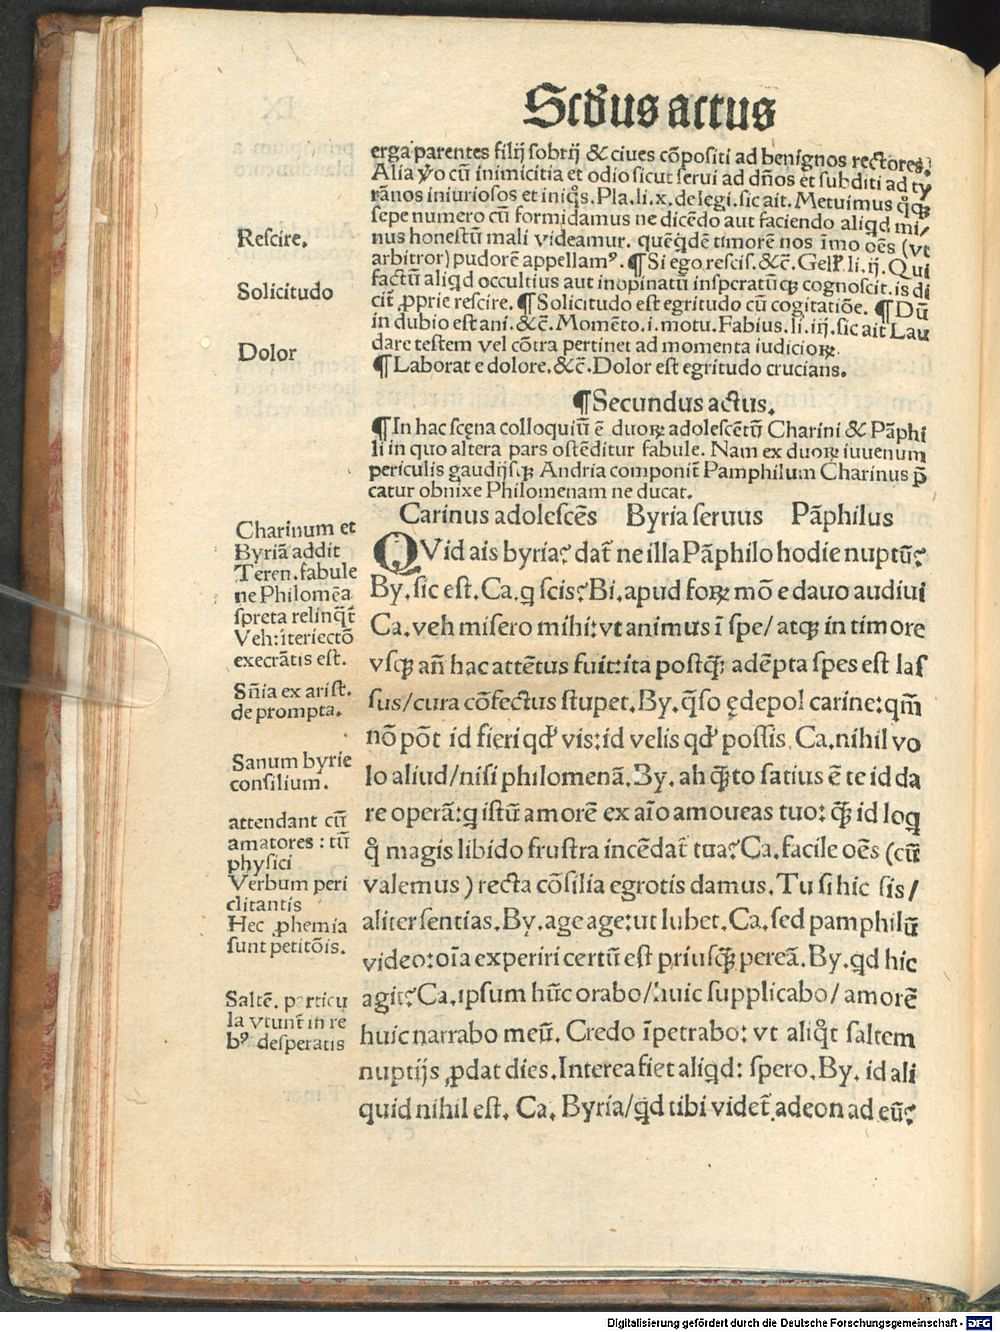 Scd̛us actus
erga parentes filij sobrij & ciues cōpositi ad benignos rectores.
Alia ỽo cū inimicitia et odio sicut serui ad dn̄os et subditi ad ty
rānos iniuriosos et iniq̊s. Pla. li. x. de legi. sic ait. Metuimus q̊qꝫ
sepe numero cū formidamus ne dicēdo aut faciendo aliqd mi/
nus honestū mali videamur. quēqdē timorē nos īmo oēs (vt
arbitror) pudorē appellamꝰ. ¶ Si ego rescis. &c̄. Gell̛. li. ij. Qui
factū aliqd occultius aut inopinatū insperatūqꝫ cognoscit. is di
cit̄ ꝓprie rescire. ¶ Solicitudo est egritudo cū cogitatiōe. ¶ Dū
in dubio est ani. &c̄. Momēto. i. motu. Fabius. li. iij. sic ait Lau
dare testem vel cōtra pertinet ad momenta iudicioꝝ.
¶ Laborat e dolore. &c̄. Dolor est egritudo crucians.
Rescire.
Solicitudo
Dolor
¶ Secundus actus.
¶ In hac scęna colloquiū ē duoꝝ adolescētū Charini & Pāphi
li in quo altera pars ostēditur fabule. Nam ex duoꝝ iuuenum
periculis gaudijsqꝫ Andria componit̄ Pamphilum Charinus p̄
catur obnixe Philomenam ne ducat.
Carinus adolescēs Byria seruus Pāphilus
QVid ais byria? dat̄ ne illa Pāphilo hodie nuptū?
By. sic est. Ca. q scis? Bi. apud foꝝ mō e dauo audiui
Ca. veh misero mihi: vt animus ī spe/ atqꝫ in timore
vsqꝫ an̄ hac attētus fuit: ita postqꝫ̄ adēpta spes est las
sus/ cura cōfectus stupet. By. q̄so ędepol carine: qm̄
nō pōt id fieri qd̛ vis: id velis qd̛ possis. Ca. nihil vo
lo aliud/ nisi philomenā. By. ah qꝫ̄to satius ē te id da
re operā: q istū amorē ex aīo amoueas tuo: qꝫ̄ id loq
q̊ magis libido frustra incēdat̄ tua? Ca. facile oēs (cū
valemus) recta cōsilia egrotis damus. Tu si hic sis/
aliter sentias. By. age age: ut lubet. Ca. sed pamphilū
video: oīa experiri certū est priusqꝫ̄ pereā. By. qd hic
agit? Ca. ipsum hūc orabo/ huic supplicabo/ amorē
huic narrabo meū. Credo īpetrabo: vt aliq̊t saltem
nuptijs ꝓdat dies. Interea fiet aliqd: spero. By. id ali
quid nihil est. Ca. Byria/ qd tibi videt̄ adeon ad eū?
Charinum et
Byriā addit
Teren. fabule
ne Philomēa
spreta relinqt̄
Veh: iteriectō
execrātis est.
Sn̄ia ex arist.
de prompta.
Sanum byrie
consilium.
attendant cū
amatores: tū
physici
Verbum peri
clitantis
Hec ꝓhemia
sunt petitōis.
Saltē. particu
la vtunt̄ in re
bꝰ desperatis
Digitalisierung gefördert durch die Deutsche Forschungsgemeinschaft - DFG